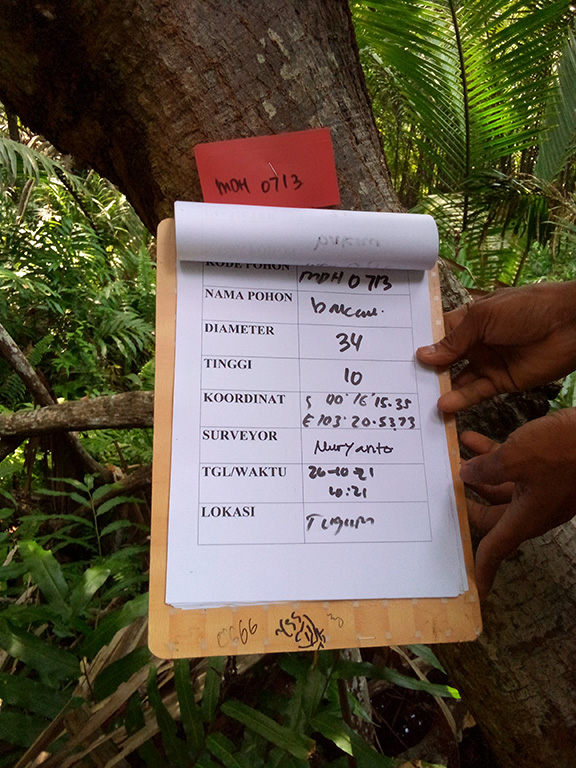 MDH 0713
KODE POHON MDH 0713
NAMA POHON bakau
DIAMETER 34
TINGGI 10
KOORDINAT S 00°16'15.35
E 103°20.5373
SURVEYOR Nuryanto
TGL/WAKTU 26-10-21
10:21
LOKASI